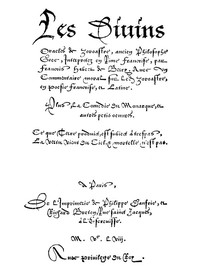 Les Diuins
Oracles de Zoroastre, ancien Philosophe
Grec, Interpretez en Rime Francoise, par
Francois Habert de Berry. Auec un
Commentaire moral sur led. Zoroastre,
en poesie Francoise, et Latine.
Plus, La Comedie du Monarque, et
autres petis oeuures.
Ce que Terre produit, est subiect à
La Vertu vient du Ciel, mortelle n'est pas.
A Paris,
De l'Imprimerie de Philippe Danfrie, et
Richard Breton, Rue sainct Iacques,
à l'Escreuisse.
M. V. LViij.
Auec priuilege du Roy.